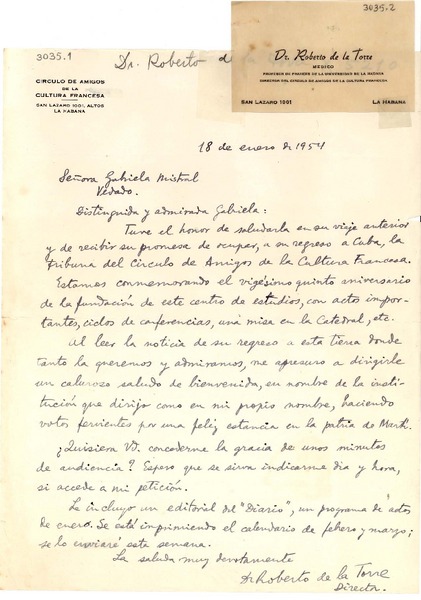 3035.1
Dr. Roberto de la
3035.2
Dr. Roberto de la Torre
MEDICO
PROFESOR DE FRANCES DE LA UNIVERSIDAD DE LA HABANA
DIRECTOR DEL CIRCULO DE AMIGOS DE LA CULTURA FRANCESA
SAN LAZARO 1001 LA HABANA
CIRCULO DE AMIGOS
DE LA
CULTURA FRANCESA
SAN LAZARO 1001, ALTOS
LA HABANA
18 de enero de 1954
Señora Gabriela Mistral
Vedado.
Distinguida y admirada Gabriela:
Tuve el honor de saludarla en su viaje anterior
y de recibir su promesa de ocupar, a su regreso a Cuba, la
tribuna del Círculo de Amigos de la Cultura Francesa.
Estamos conmemorando el vigésimo quinto aniversario
de la fundación de este centro de estudios, con actos impor-
tantes, ciclos de conferencias, una misa en la Catedral, etc.
Al leer la noticia de su regreso a esta tierra donde
tanto la queremos y admiramos, me apresuro a dirigirle
un caluroso saludo de bienvenida, en nombre de la insti-
tución que dirijo como en mi propio nombre, haciendo
votos fervientes por una feliz estancia en la patria de Martí.
¿Quisiera Vd. concederme la gracia de unos minutos
de audiencia? Espero que se sirva indicarme día y hora,
si accede a mi petición.
Le incluyo un editorial del "Diario", un programa de actos
de enero. Se está imprimiendo el calendario de febrero y marzo;
se lo enviaré esta semana.
La saluda muy devotamente
Dr Roberto de la Torre
Director.